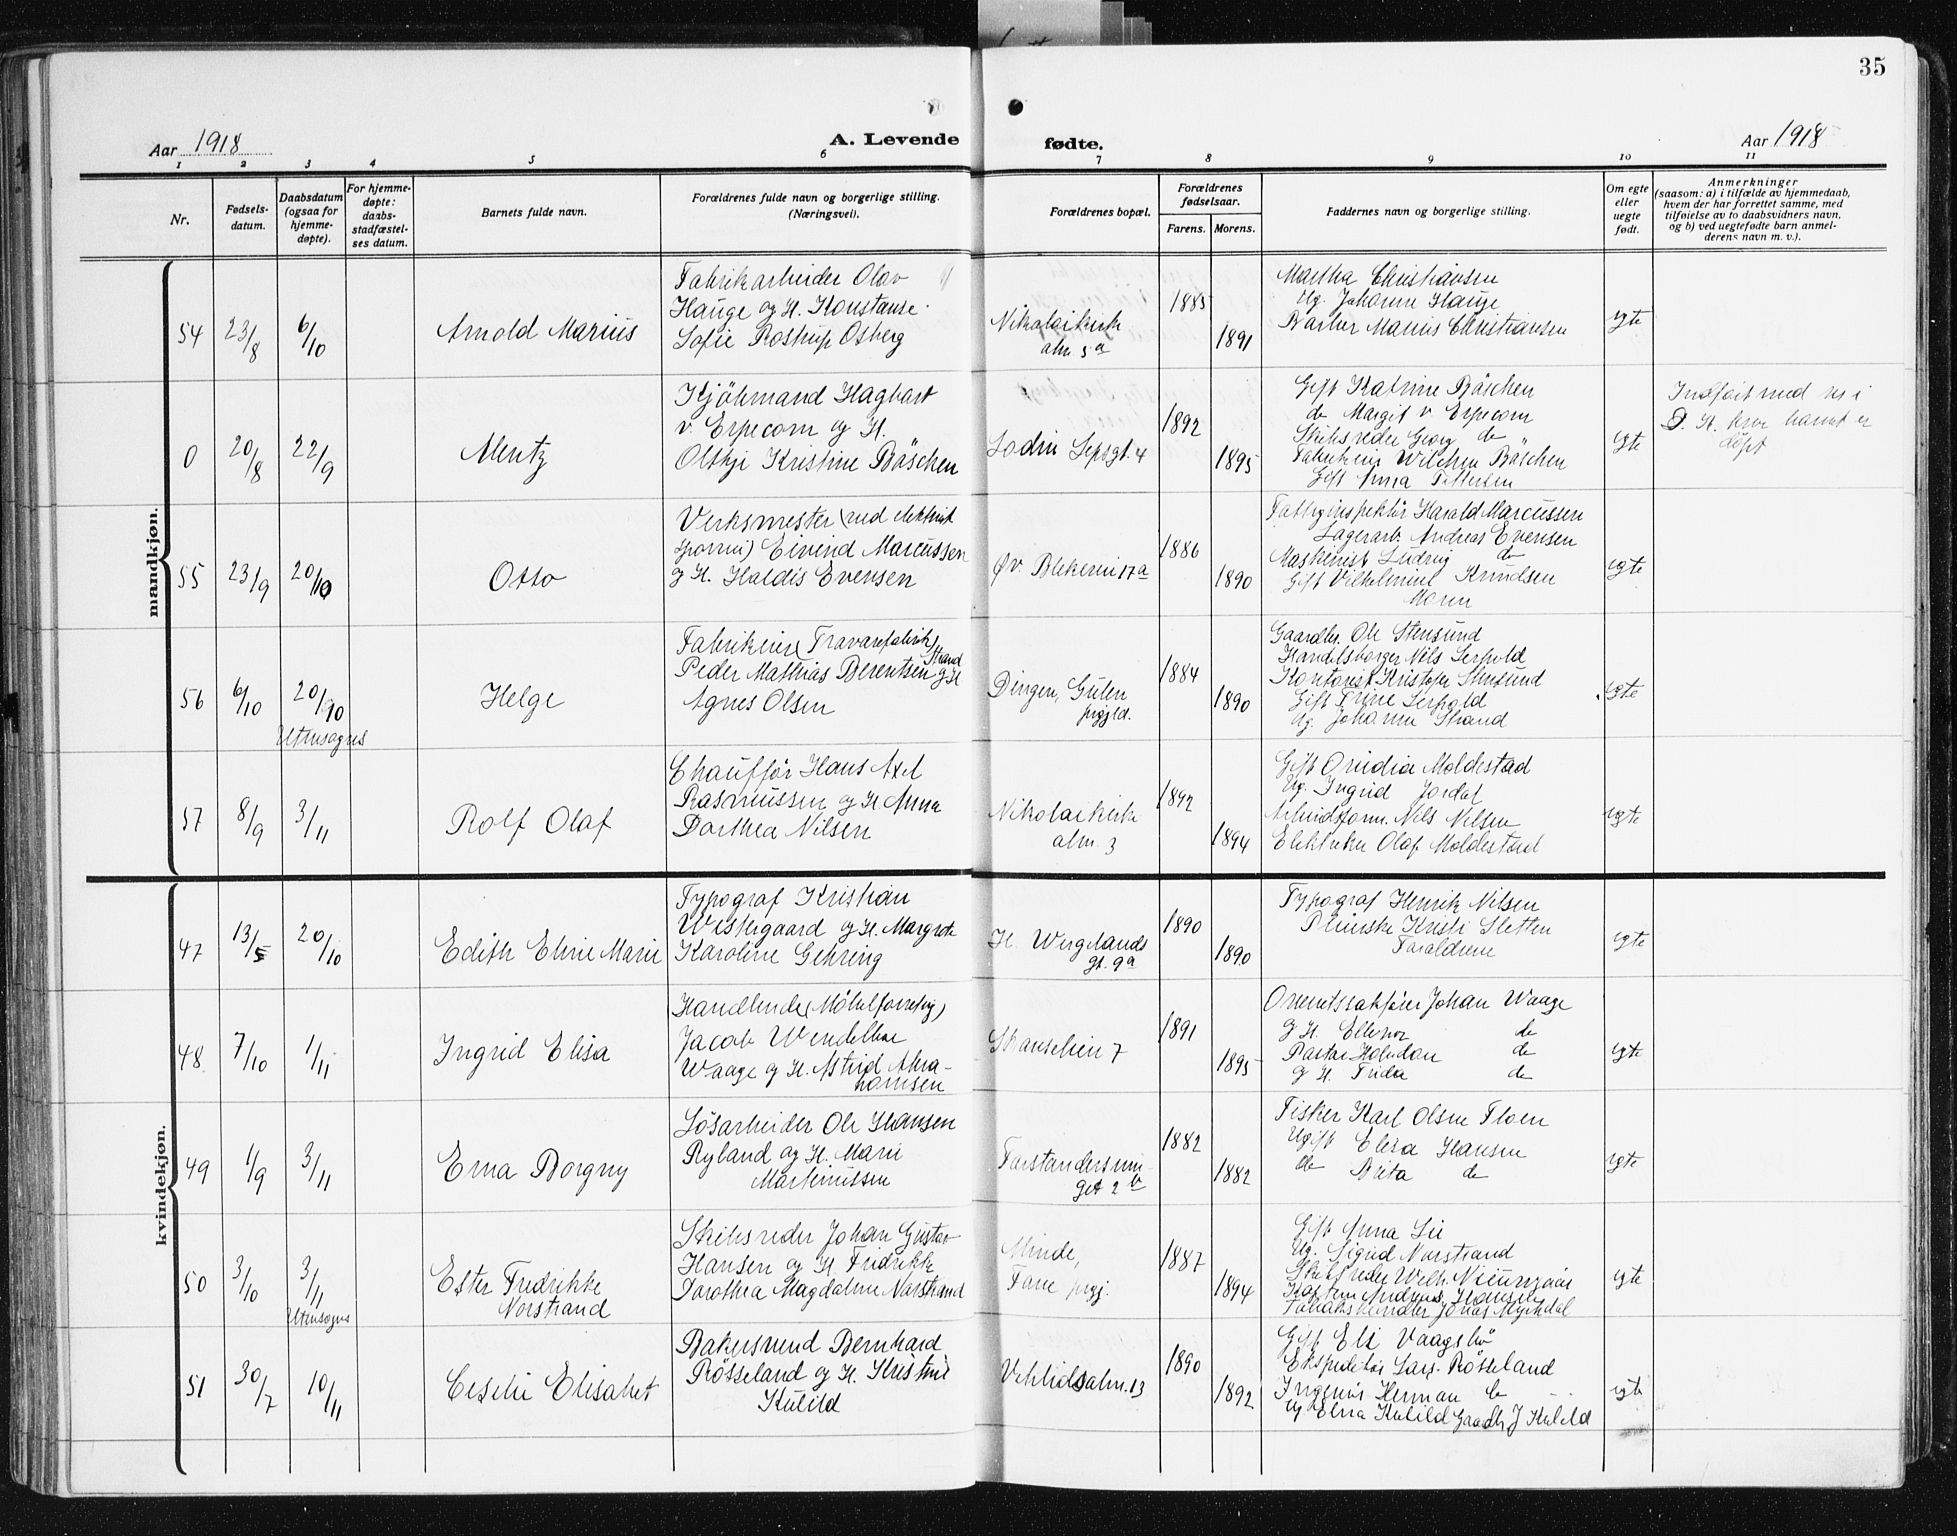 35
Aar 1918
A. Levende
fødte.
Aar 1918
1 2 3 4 5 6 7 8 9 10 11
Nr.
Fødsels-
datum.
Daabsdatum
(ogsaa for
hjemme-
døpte).
For hjemme-
døpte:
daabs-
stadfæstel-
ses datum.
Barnets fulde navn.
Forældrenes fulde navn og borgerlige stilling.
(Næringsvei).
Forældrenes bopæl.
Forældrenes
fødselsaar.
Farens. Morens.
Faddernes navn og borgerlige stilling.
Om egte
eller
uegte
født.
Anmerkninger
(saasom: a) i tilfælde av hjemmedaab,
hvem der har forrettet samme, med
tilføielse av to daabsvidners navn,
og b) ved uegtefødte barn anmel-
derens navn m. v.).
mandkjøn.
54 23/8 6/10
Arnold Marius
Fabrikarbeider Olav
Hauge og H. Konstanse
Sofie Rostrup Osberg
Nikolaikirk
alm 5a
1885
1891
Martha Christiansen
Ug. Johanne Hauge
Barber Marius Christiansen
egte
0 20/8 22/9
Mentz
Kjøbmand Hagbart
v. Erpecom og H.
Olthje Kristine Bäschen
Lodin Lepsgt. 4
1892
1895
Gift Katrine Bäschen
do Margit v Erpecom
Skibsreder Georg do
Fabrikeier Wilchen Bäschen
Gift Anna
egte
Indført med nr i
D. K. hvor barnet er
døpt
55 23/9 20/10
Otto
Verksmester (ved elektrisk
sporvei) Eivind Marcussen
og H. Haldis Evensen
Øv. Blekevei 17a
1886
1890
Harald Marcussen
Lagerarb. Andreas Evensen
Maskinist Ludvig do
Gift Vilhelmine Knudsen
Moren
egte
56 6/10 20/10
Utensogns
Helge
Fabrikeier (Travarefabrik)
Peder Mathias Berentsen Strand og H
Agnes Olsen
Dingen, Gulen
prgjld.
1884
1890
Gaardbr. Ole Stensund
Handelsborger Nils Serpold
Kontorist Kristofer Stensund
Gift Trine Serpold
Ug. Johanne Strand
egte
57 8/9 3/11
Rolf Olaf
Chauffør Hans Axel
Rasmussen og H. Anna
Dorthea Nilsen
Nikolaikirke
alm. 3
1892
1894
Gift Ovidia Moldestad
Ug. Ingrid Jordal
Arbeidsform. Nils Nilsen
Elektriker Olaf Moldestad
egte
kvindekjøn.
47 13/5 20/10
Edith Eline Marie
Typograf Kristian
Westergaard og H. Margrete
Karoline Gehring
H. Wergelands
gt. 9a
1890
1890
Typograf Henrik Nilsen
Kristi Sletten
Forældrene
egte
48 7/10 1/11
Ingrid Elisa
Handlende (Møbelforretng)
Jacob Wendelboe
Waage og H. Astrid Abra-
hamsen
Skanselien 7
1891
1895
Overretssakfører Johan Waage
og H. Ellenor do
Pastor Halvdan do
og H. Frida do
egte
49 1/9 3/11
Erna Borgny
Løsarbeider Ole Hansen
Ryland og H. Marie
Martinussen
Forstandersmu-
get 2b
1882
1882
Fisker Karl Olsen Floen
Ugift Elisa Hansen
do Brita do
egte
50 3/10 3/11
Utensogns
Ester Fredrikke
Norstrand
Skibsreder Johan Gustav
Hansen og H. Fredrikke
Dorothea Magdalene Norstrand
Minde,
Fane prgj.
1887
1894
Gift Anna Lie
Ug. Sigrid Norstrand
Skibsreder Welh. Nieumgaar
Kaptein Andreas Hansen
Tobakshandler Jonas Myhdal
egte
51 30/7 10/11
Cecelie Elisabet
Bakersvend Bernhard
Røsseland og H. Kristine
Kulild
Vetlidsalm. 13
1890
1892
Gift Eli Vaagsbø
Ekspeditør Lars Røsseland
Ingeniør Herman do
Ug Elna Kulild Gaardb. J Kulild
egte